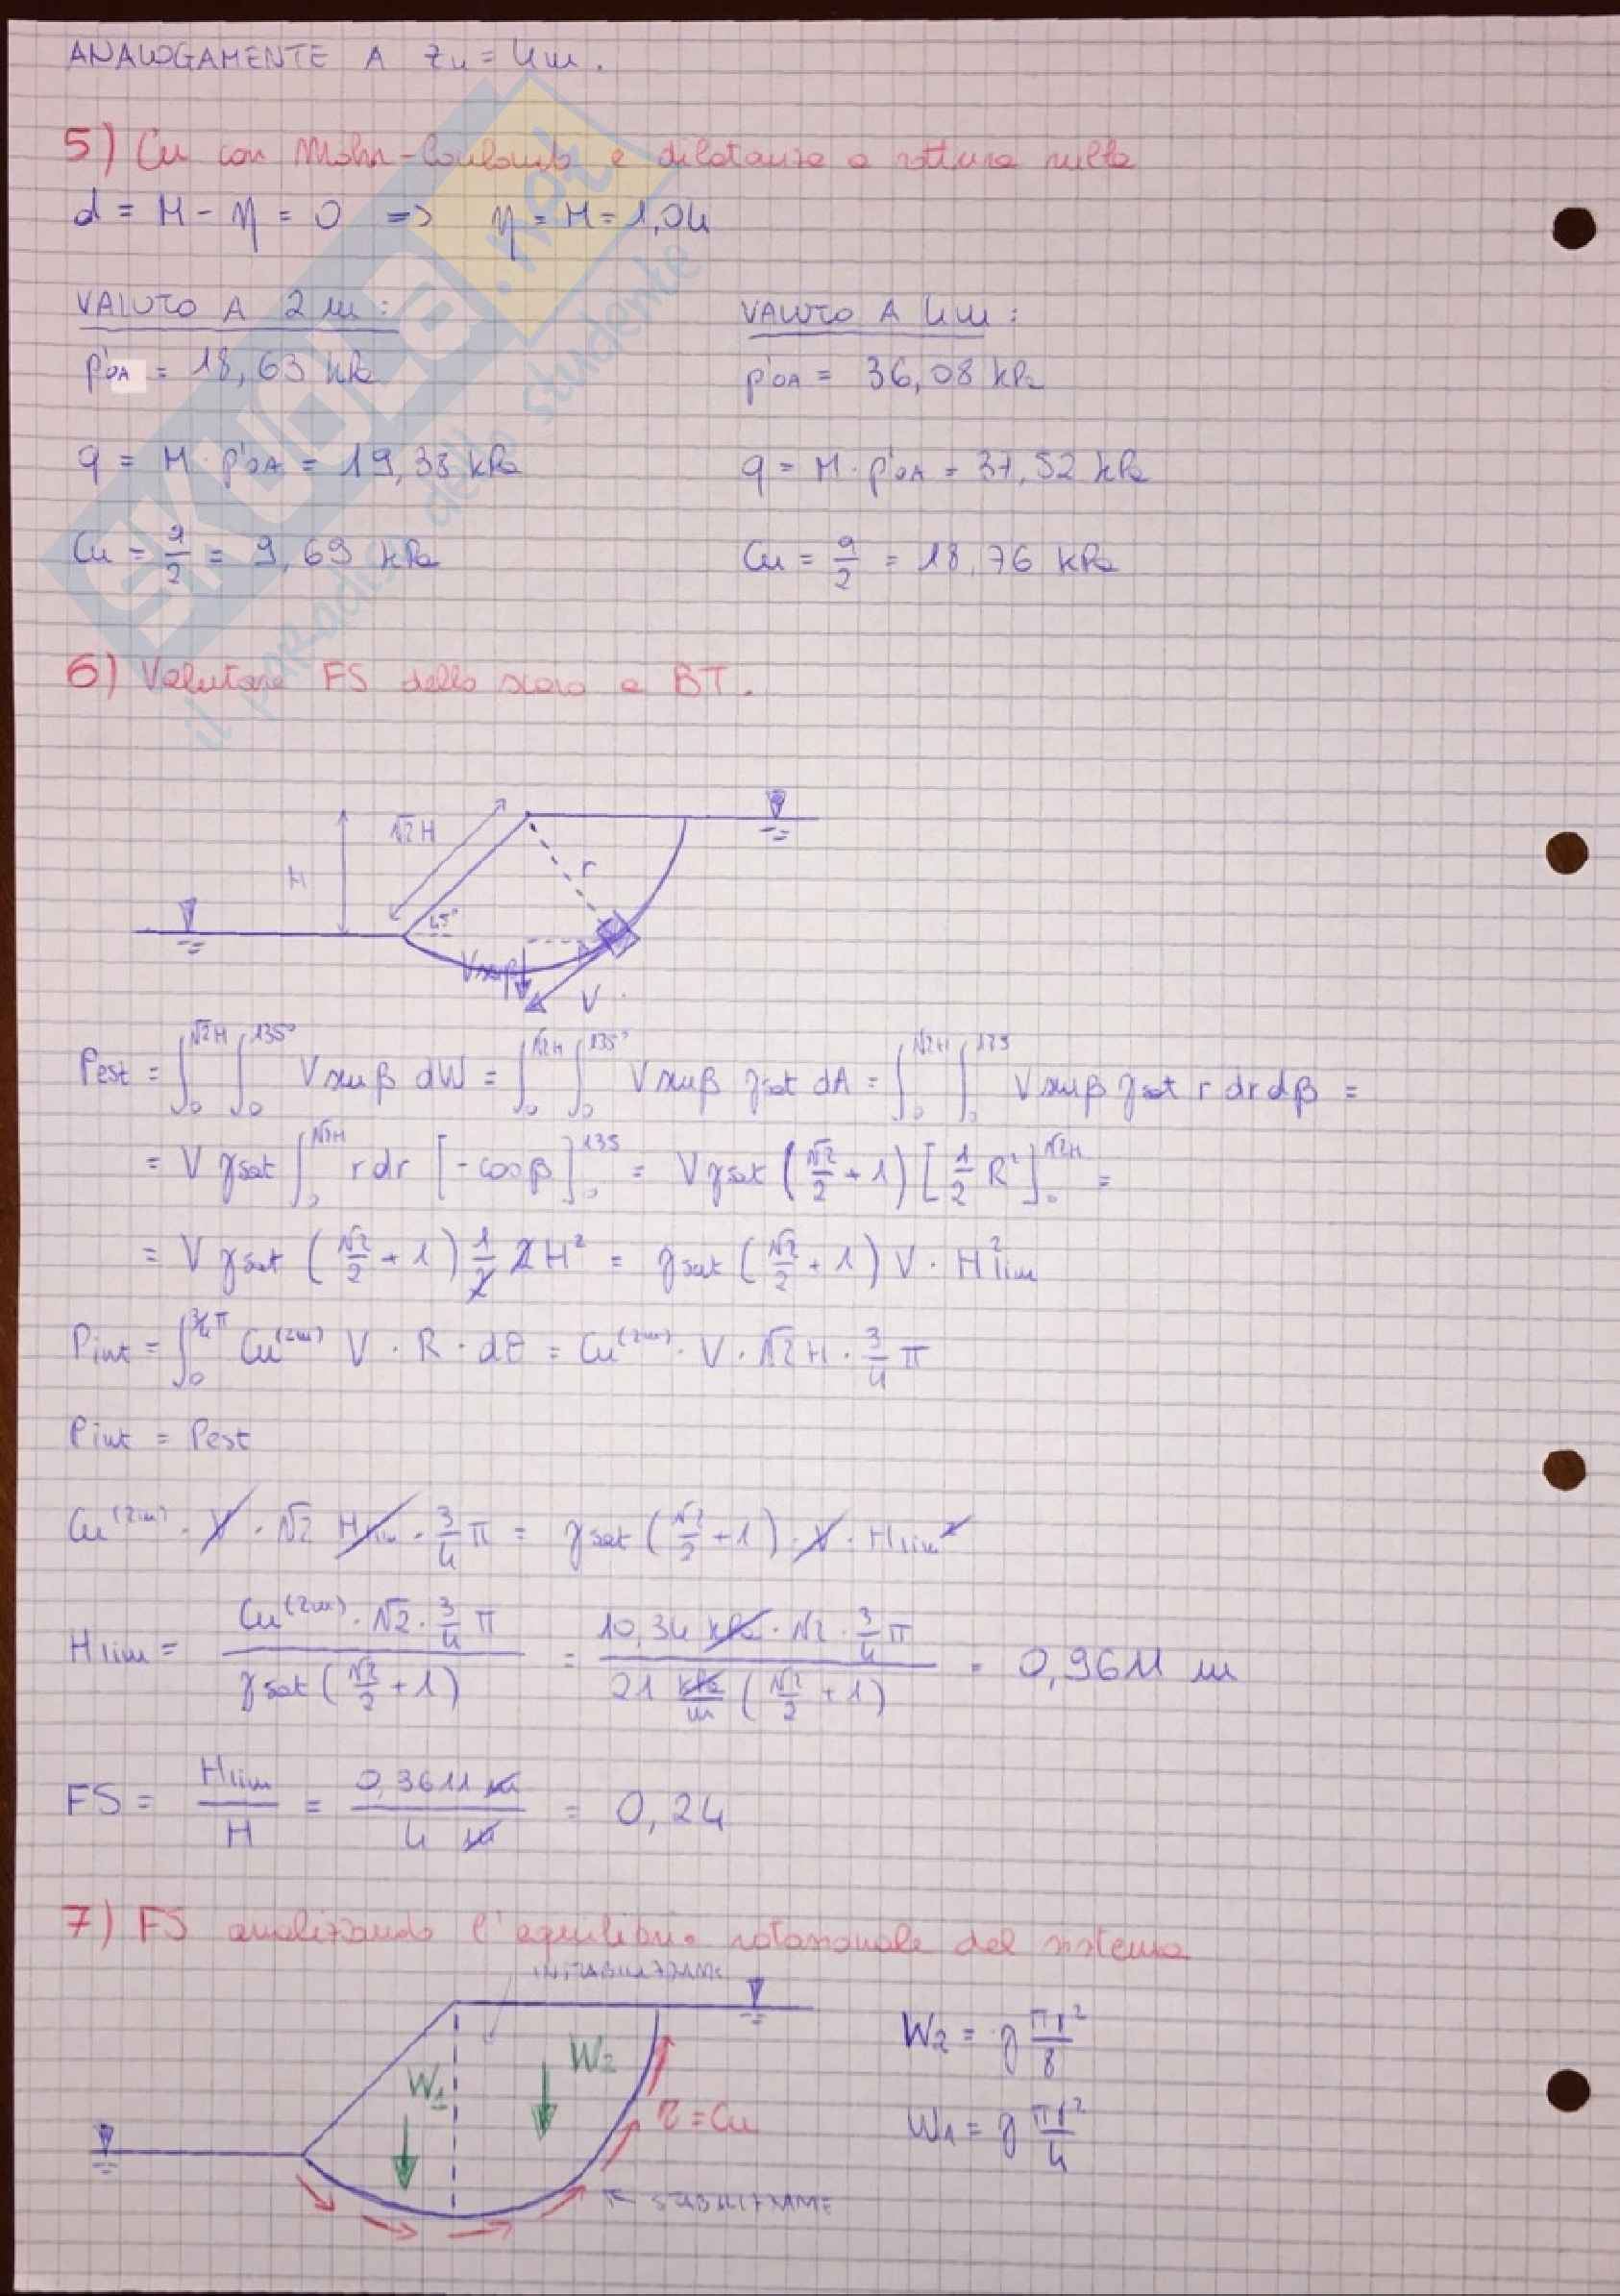 ANALOGAMENTE A zw = 4m.
5) Cu con Mohr-Coulomb e dilatanza a rottura nulla
d = M - η = 0 => η = M = 1,04
VALUTO A 2 m:
p'OA = 18,63 kPa
q = M · p'OA = 19,38 kPa
Cu = q/2 = 9,69 kPa
VALUTO A 4m:
p'OA = 36,08 kPa
q = M · p'OA = 37,52 kPa
Cu = q/2 = 18,76 kPa
SKUOLA.net
il paradiso dello studente
6) Valutare FS dello scavo a BT.
√2 H
H
r
45°
V sinβ
V
Pest = ∫₀^√2H ∫₀^135° V sinβ dW = ∫₀^√2H ∫₀^135° V sinβ γsat dA = ∫₀^√2H ∫₀^135 V sinβ γsat r dr dβ =
= V γsat ∫₀^√2H r dr [-cosβ]₀^135 = V γsat (√2/2 + 1) [1/2 R²]₀^√2H =
= V γsat (√2/2 + 1) 1/2 2 H² = γsat (√2/2 + 1) V · H²lim
Pint = ∫₀^3/4π Cu^(2m) V · R · dθ = Cu^(2m) · V · √2 H · 3/4 π
Pint = Pest
Cu^(2m) · V · √2 Hlim · 3/4 π = γsat (√2/2 + 1) · V · Hlim²
Hlim = Cu^(2m) · √2 · 3/4 π / γsat (√2/2 + 1) = 10,34 kPa · √2 · 3/4 π / 21 kPa/m (√2/2 + 1) = 0,9611 m
FS = Hlim / H = 0,9611 m / 4 m = 0,24
7) FS analizzando l'equilibrio rotazionale del sistema
INSTABILIZZANTE
W1
W2
τ = Cu
STABILIZZANTE
W2 = γ πr²/8
W1 = γ πr²/4